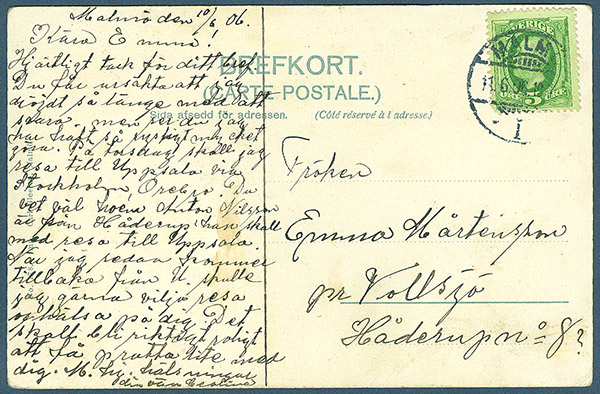 Malmö den 10/6 06.
Kära Emma!
Hjärtligt tack för ditt bref.
Du får ursäkta att jag
dröjdt så länge med att
svara, men ser du jag
har haft så rysligt mycket
göra. På torsdag skall jag
resa till Uppsala via
Stockholm, Örebro. Du
vet väl hvem Anton Nilsson
är från Håderup han skall
med resa till Uppsala.
När jag redan kommer
tillbaka från U. skulle
jag gärna vilja resa
och hälsa på dig. Det
skall bli riktigt roligt
att få pratta lite med
dig. M. hj. hälsningar
din vän
BREFKORT.
(CARTE-POSTALE.)
Sida afsedd för adressen. (Côté réservé à l'adresse.)
SVERIGE
5
ÖRE
MALMÖ
11.6.
Fröken
Emma Mårtensson
pr Vollsjö
Håderup no 8